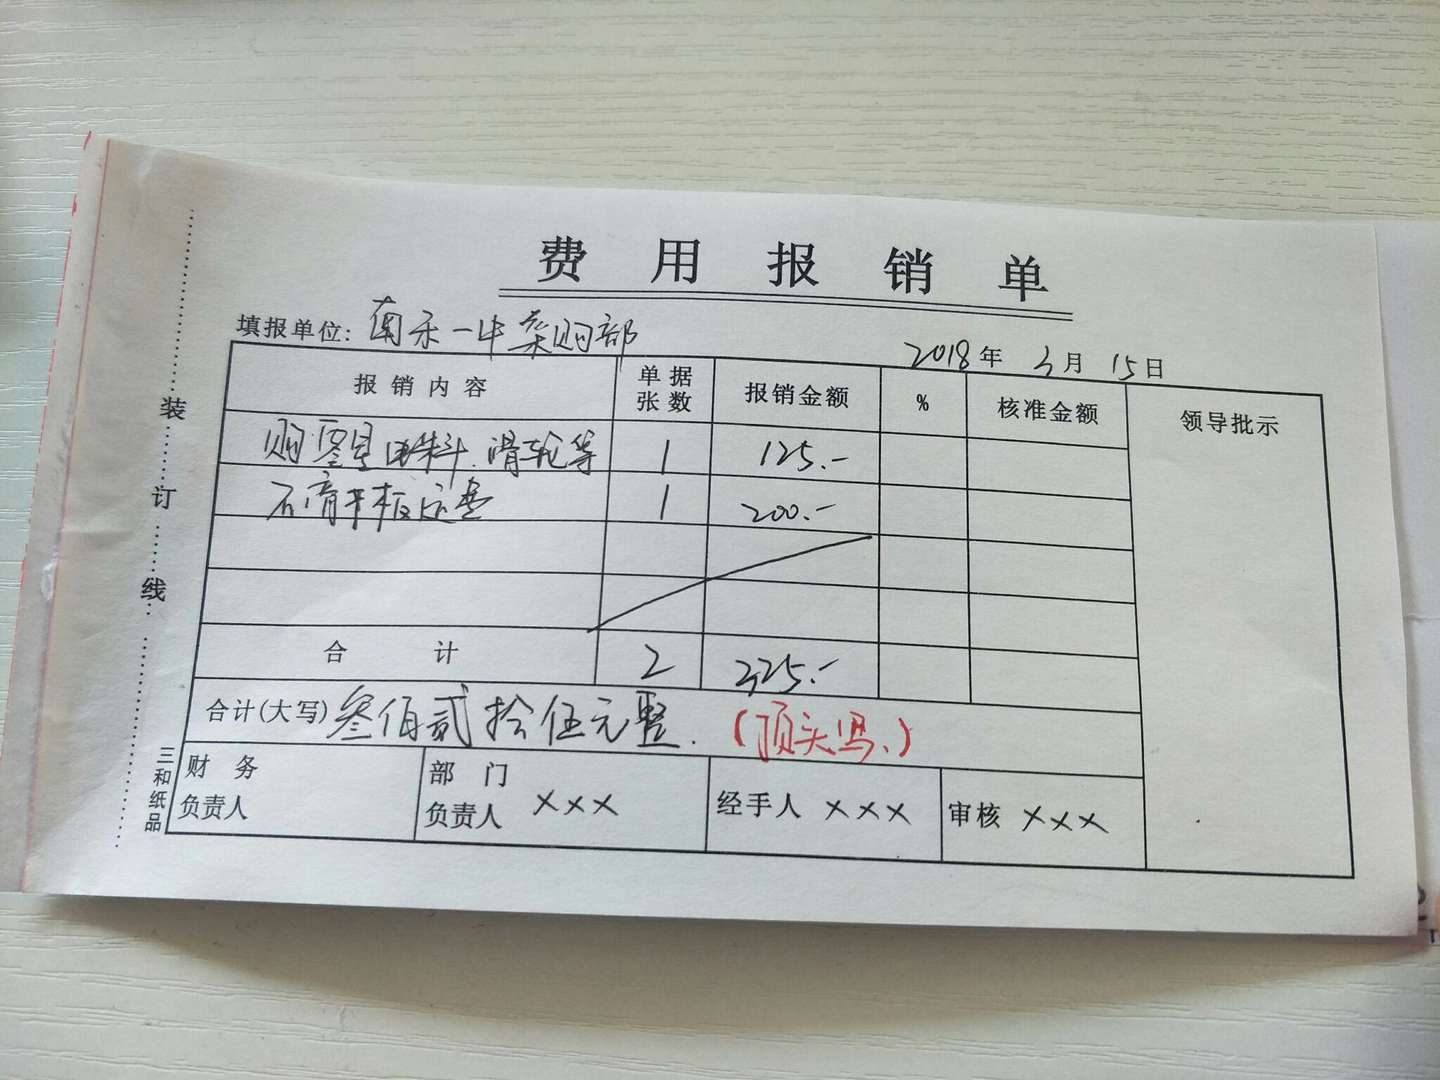 费用报销单
填报单位: 南禾一中菜购部
2018年 3月 15日
报销内容 单据张数 报销金额 % 核准金额 领导批示
购零星材料、滑轮等 1 125.-
石膏平板 1 200.-
合计 2 325.-
合计(大写) 叁佰贰拾伍元整. (顶头写、)
财务负责人 部门负责人 ××× 经手人 ××× 审核 ×××
装订线
三和纸品